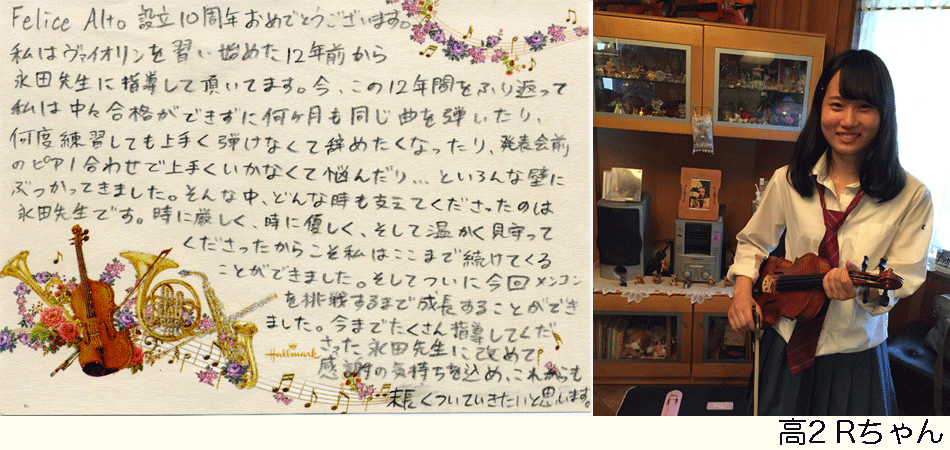 Felice Alto 設立10周年おめでとうございます。
私はヴァイオリンを習い始めた12年前から
永田先生に指導して頂いてます。今、この12年間をふり返って
私は中々合格ができずに何ヶ月も同じ曲を弾いたり、
何度練習しても上手く弾けなくて辞めたくなったり、発表会前
のピアノ合わせで上手くいかなくて悩んだり...といろんな壁に
ぶつかってきました。そんな中、どんな時も支えてくださったのは
永田先生です。時に厳しく、時に優しく、そして温かく見守って
くださったからこそ私はここまで続けてくる
ことができました。そしてついに今回メンコン
を挑戦するまで成長することができ
ました。今までたくさん指導してくだ
さった永田先生に改めて
感謝の気持ちを込め、これからも
末長くついていきたいと思います。
Hallmark
高2 Rちゃん